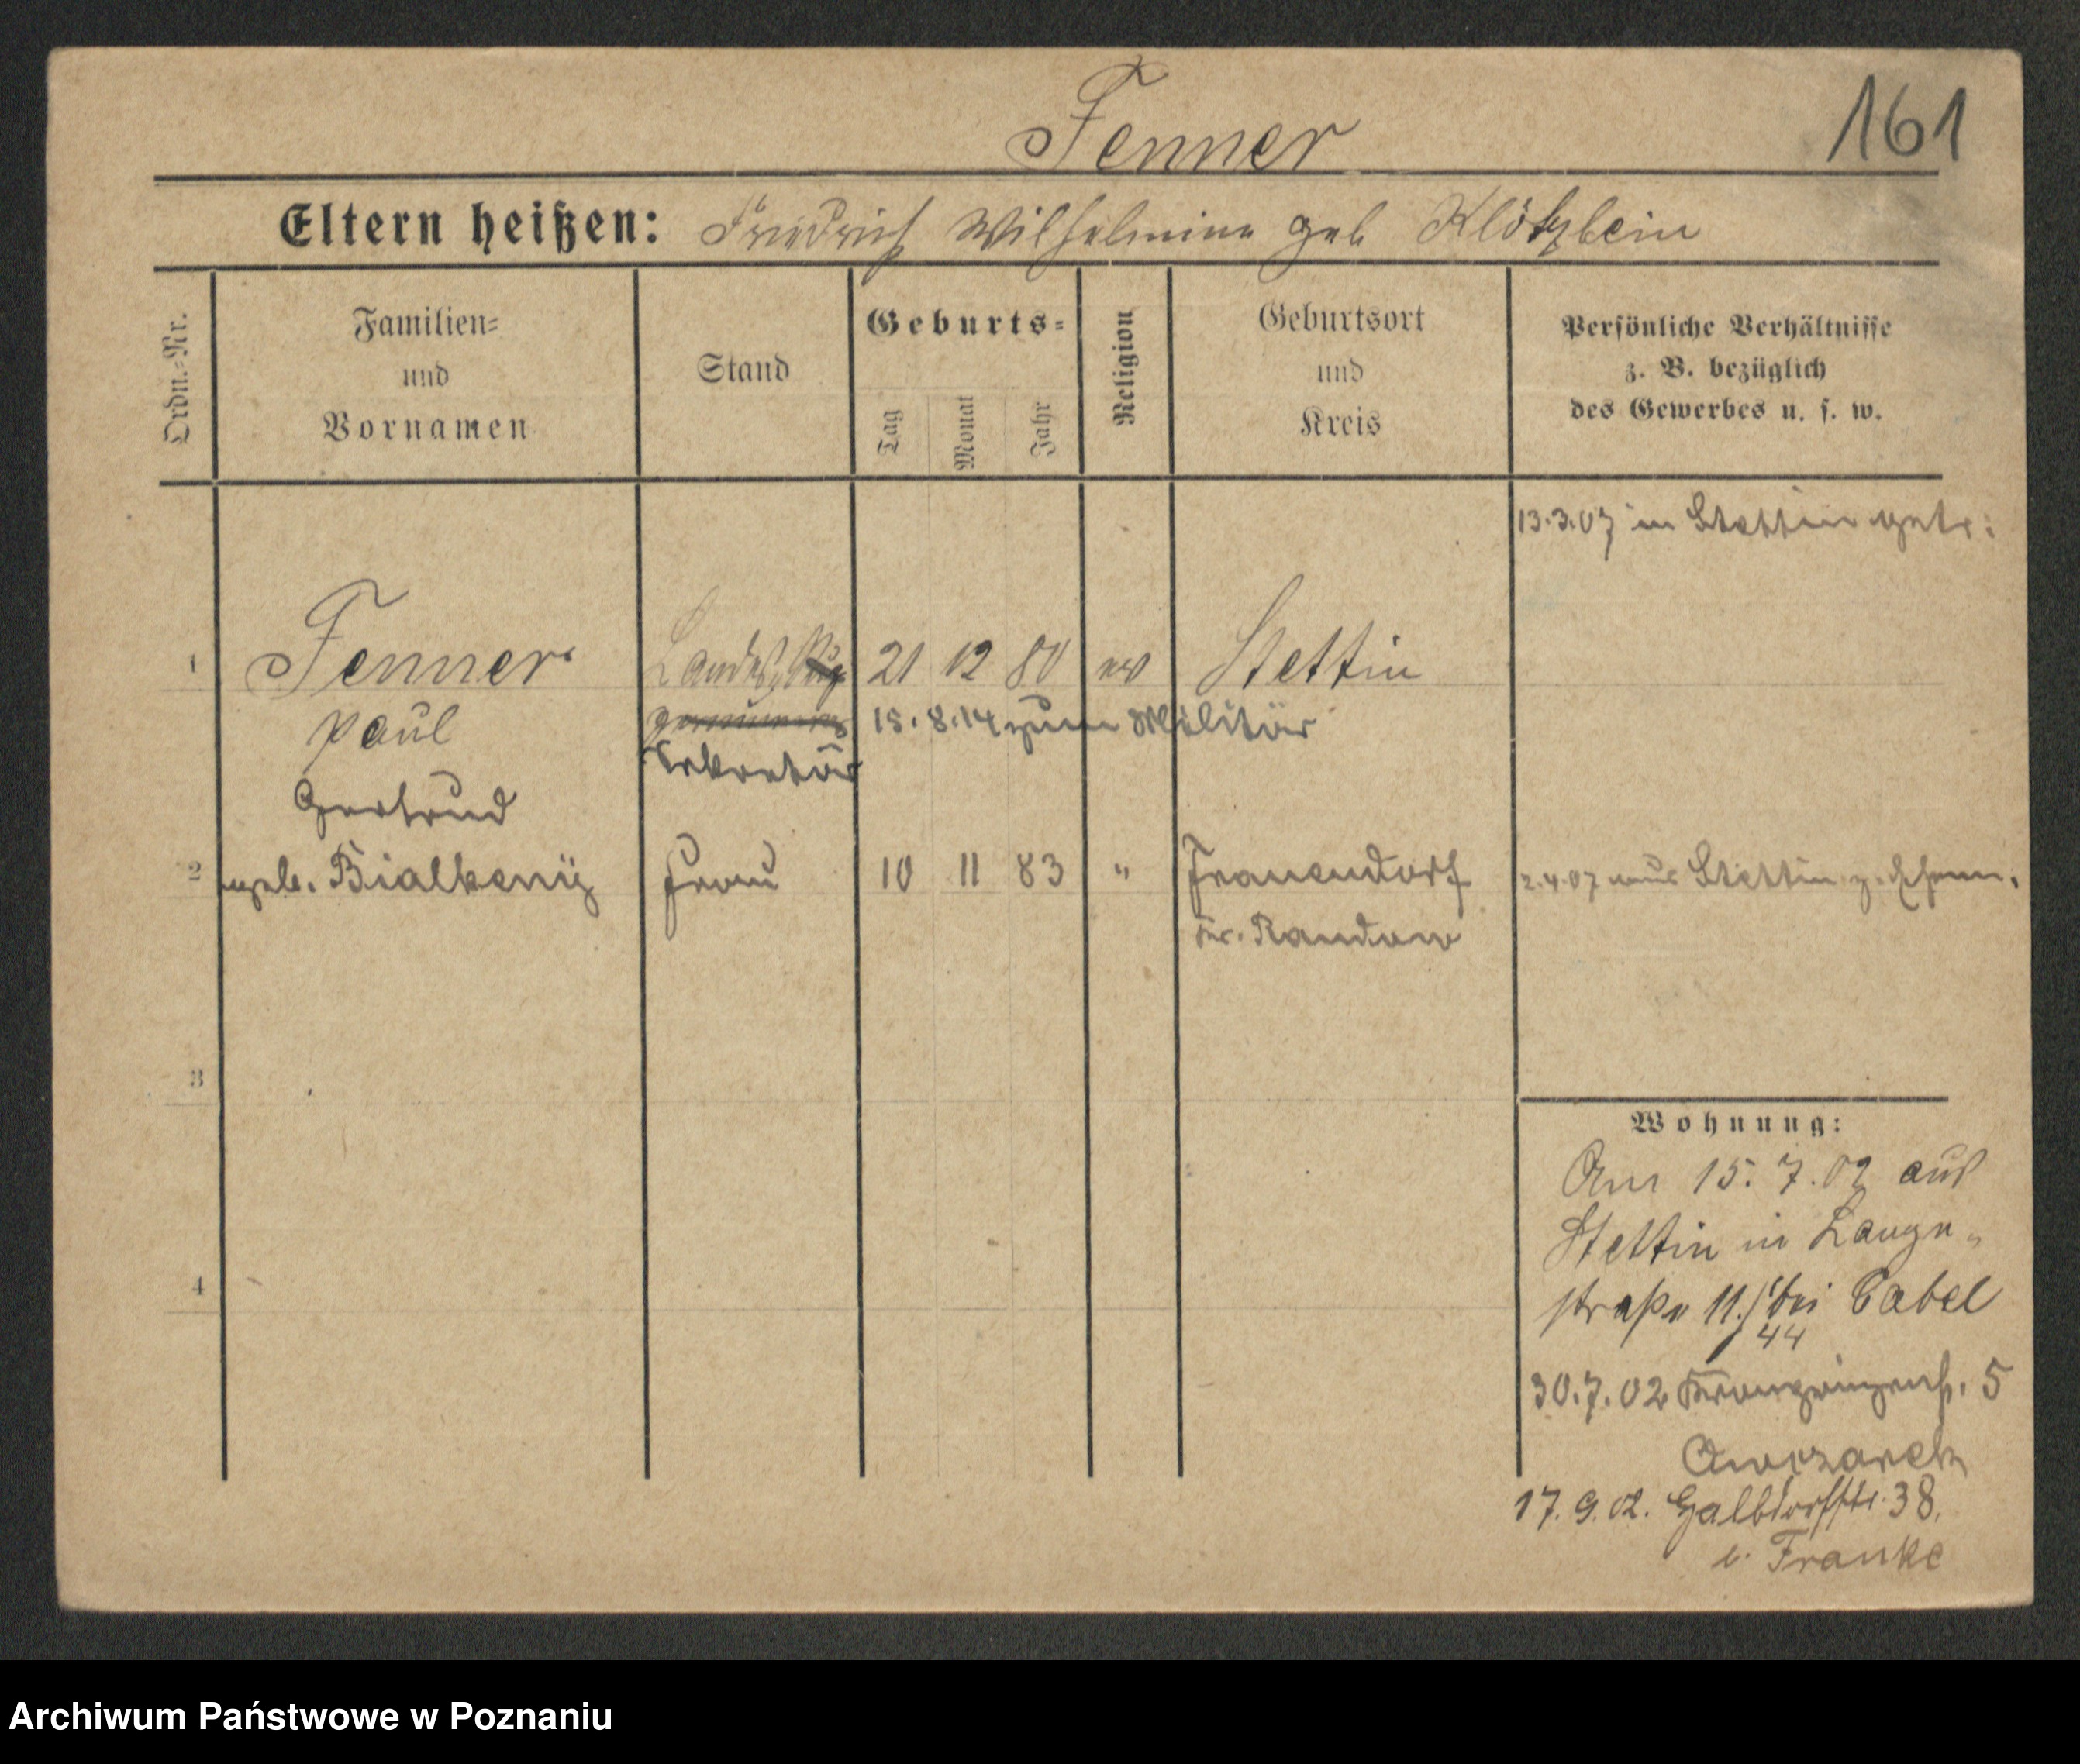 Fenner
161
Eltern heißen: Friedrich Wilhelmine geb Klötzbein
Ordn.=Nr.
Familien=
und
Vornamen
Stand
Geburts=
Tag
Monat
Jahr
Religion
Geburtsort
und
Kreis
Persönliche Verhältnisse
z. B. bezüglich
des Gewerbes u. s. w.
13.3.07 in Stettin getr:
1 Fenner Landes 21 12 80 ev Stettin
Paul 15.8.14 zum Militär
Sekretär
Gertrud
2 geb. Frau 10 11 83 " Frauendorf 2.4.07 aus Stettin z.
Kr. Randow
3
Wohnung:
Am 15.7.02 aus
Stettin in Lange-
4 straße 11./ bei Gabel
44
30.7.02 Kronprinzenstr. 5
17.9.02. 38.
b. Franke
Archiwum Państwowe w Poznaniu